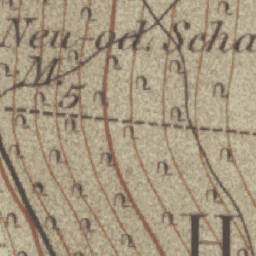 Neu-od. Scha
M.
5
H